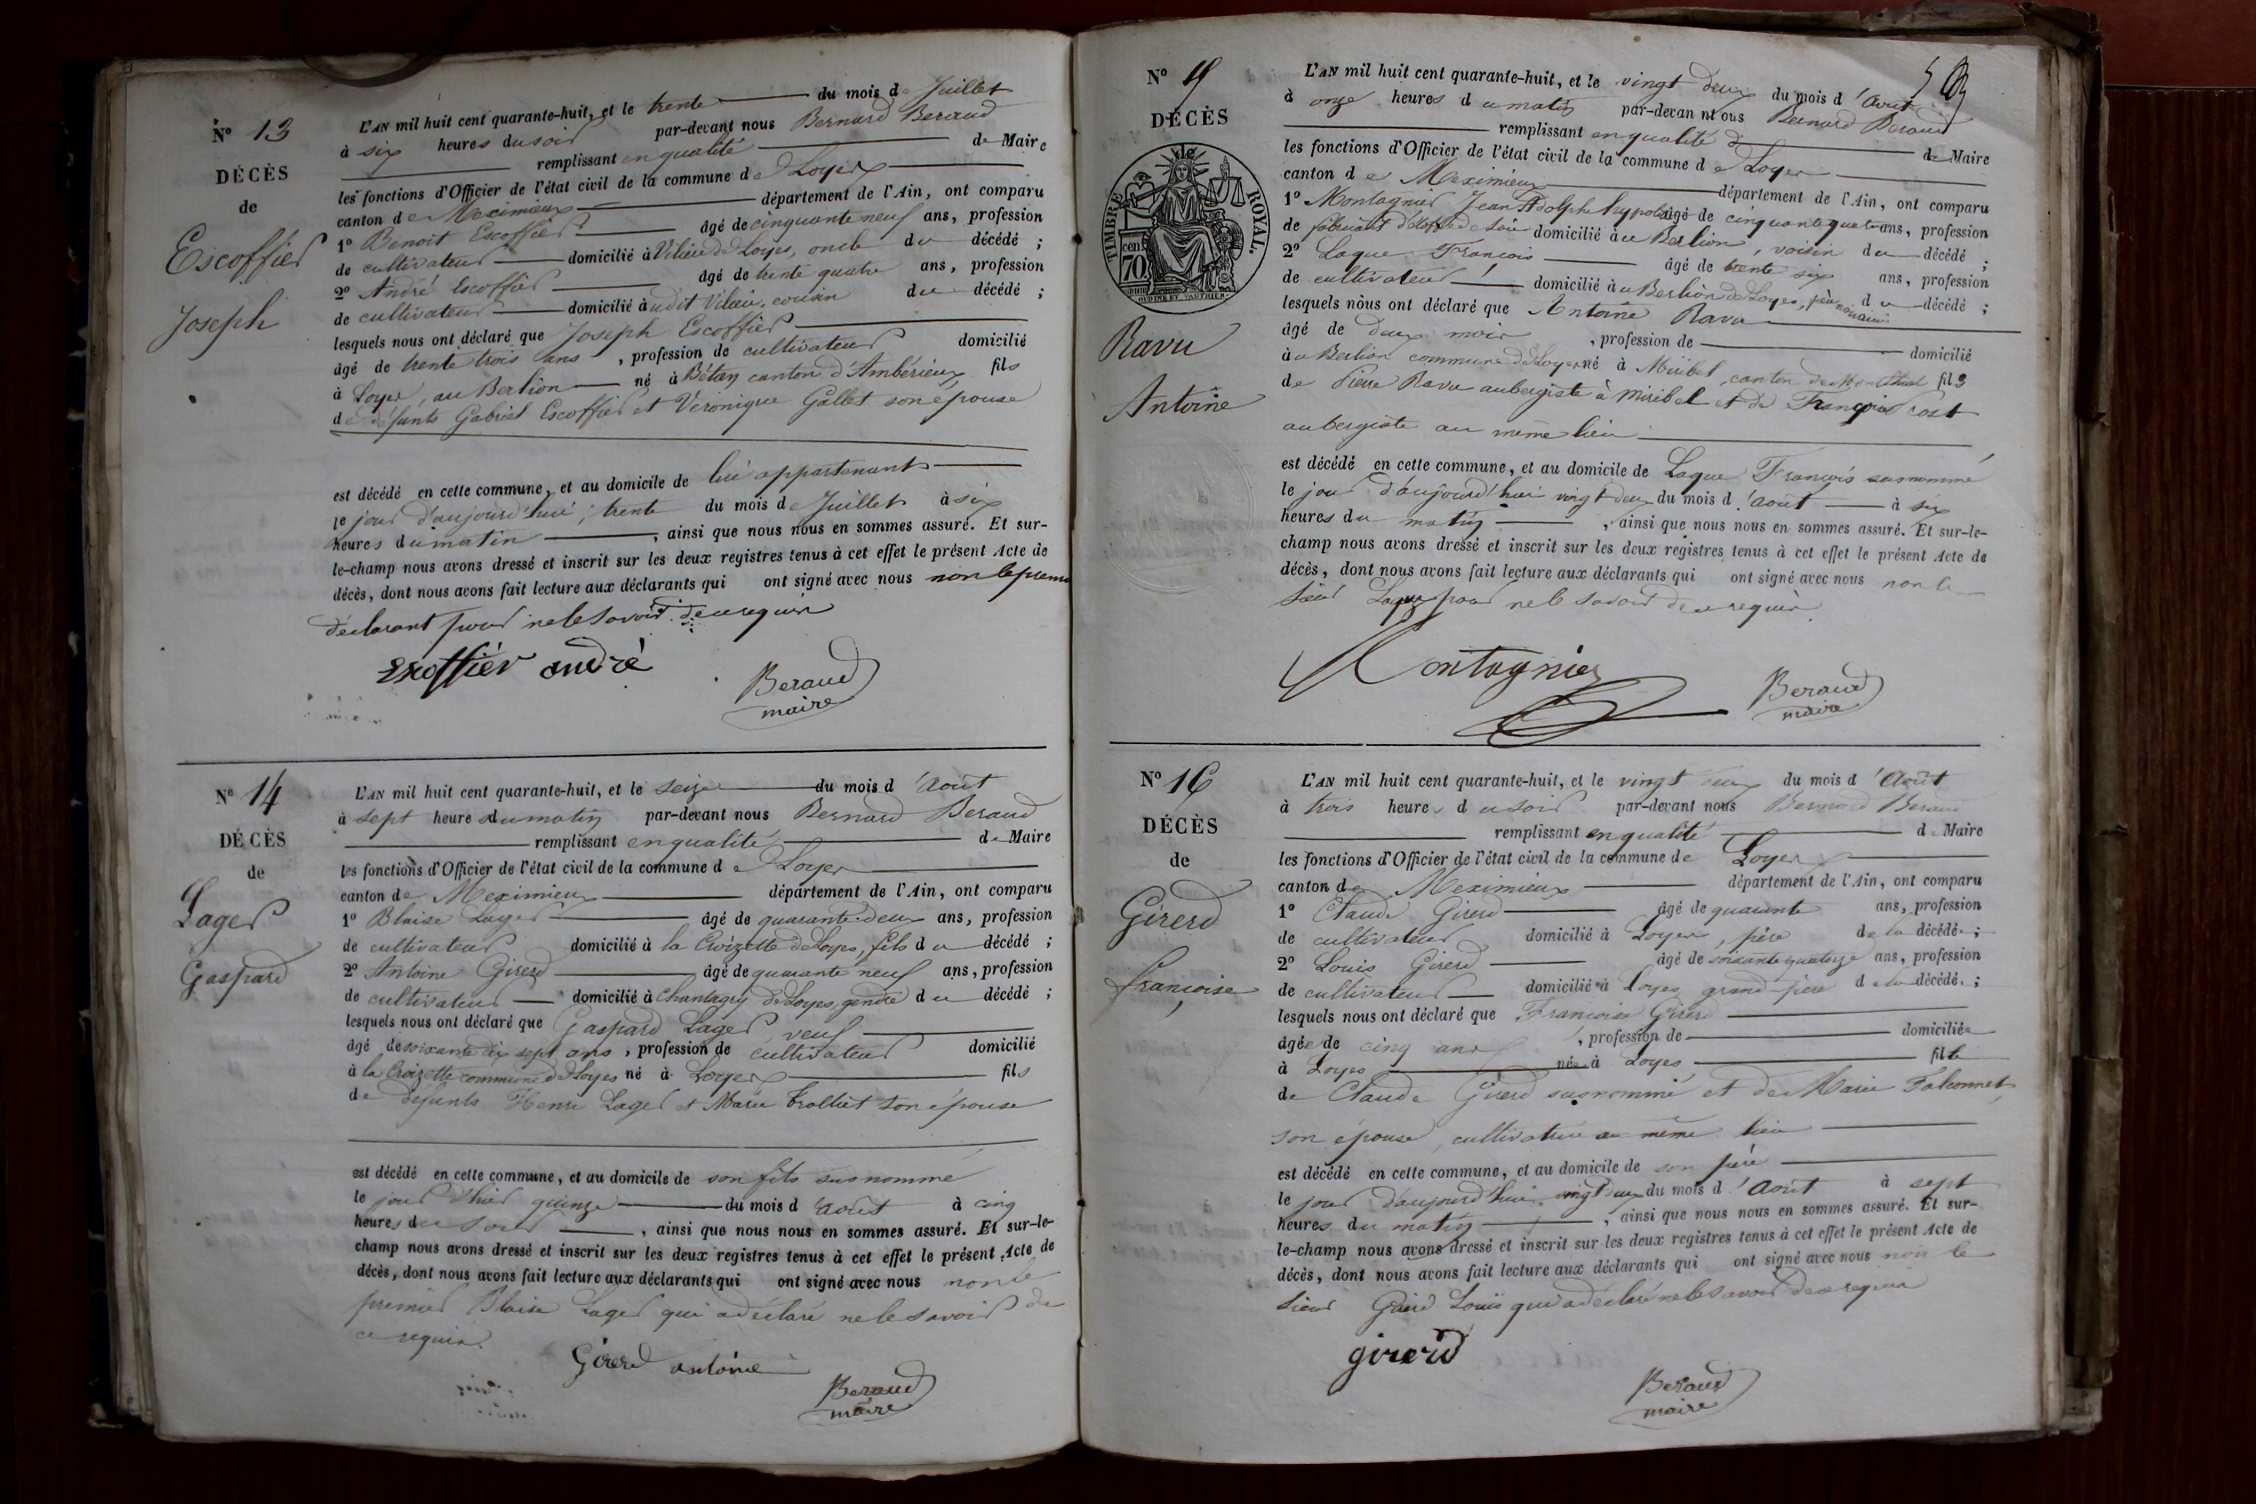 N° 13
DÉCÈS
de
Escoffier
Joseph
L'AN mil huit cent quarante-huit, et le trente du mois de Juillet
à six heures du soir par-devant nous Bernard Beraud
remplissant en qualité de Maire
les fonctions d'Officier de l'état civil de la commune de Loyes
canton de Meximieux département de l'Ain, ont comparu
1° Benoit Escoffier âgé de cinquante neuf ans, profession
de cultivateur domicilié à Vilieu de Loyes, oncle du décédé ;
2° André Escoffier âgé de trente quatre ans, profession
de cultivateur domicilié audit Vilieu, cousin du décédé ;
lesquels nous ont déclaré que Joseph Escoffier
âgé de trente trois ans, profession de cultivateur domicilié
à Loyes, au Berlion né à Bétan canton d'Ambérieux fils
de défunts Gabriel Escoffier et Véronique Gallet son épouse
est décédé en cette commune, et au domicile de lui appartenant
le jour d'aujourd'hui, trente du mois de Juillet à six
heures du matin, ainsi que nous nous en sommes assuré. Et sur-
le-champ nous avons dressé et inscrit sur les deux registres tenus à cet effet le présent Acte de
décès, dont nous avons fait lecture aux déclarants qui ont signé avec nous non le premier
déclarant pour ne le savoir de ce requis
Escoffier andré
Beraud
maire
N° 14
DÉCÈS
de
Lager
Gaspard
L'AN mil huit cent quarante-huit, et le seize du mois d'août
à sept heures du matin par-devant nous Bernard Beraud
remplissant en qualité de Maire
les fonctions d'Officier de l'état civil de la commune de Loyes
canton de Meximieux département de l'Ain, ont comparu
1° Blaise Lager âgé de quarante deux ans, profession
de cultivateur domicilié à la Croizette de Loyes, fils du décédé ;
2° Antoine Girerd âgé de quarante neuf ans, profession
de cultivateur domicilié à Chantagny de Loyes, gendre du décédé ;
lesquels nous ont déclaré que Gaspard Lager veuf
âgé de soixante dix sept ans, profession de cultivateur domicilié
à la Croizette commune de Loyes né à Loyes fils
de défunts Henri Lager et Marie Trolliet son épouse
est décédé en cette commune, et au domicile de son fils susnommé
le jour d'hier quinze du mois d'août à cinq
heures du soir, ainsi que nous nous en sommes assuré. Et sur-le-
champ nous avons dressé et inscrit sur les deux registres tenus à cet effet le présent Acte de
décès, dont nous avons fait lecture aux déclarants qui ont signé avec nous non le
premier Blaise Lager qui a déclaré ne le savoir de
ce requis
Girerd antoine
Beraud
maire
N° 15
DÉCÈS
de
TIMBRE ROYAL.
cen 70
Ravu
Antoine
L'AN mil huit cent quarante-huit, et le vingt deux du mois d'août
à onze heures du matin par-devant nous Bernard Beraud
remplissant en qualité de Maire
les fonctions d'Officier de l'état civil de la commune de Loyes
canton de Meximieux département de l'Ain, ont comparu
1° Montagnier Jean Adolphe hypolite âgé de cinquante quatre ans, profession
de fabricant d'étoffe de soie domicilié au Berlion, voisin du décédé ;
2° Laque François âgé de trente six ans, profession
de cultivateur domicilié au Berlion de Loyes, père nouricier du décédé ;
lesquels nous ont déclaré que Antoine Ravu
âgé de deux mois, profession de domicilié
au Berlion commune de Loyes né à Miribel, canton de Montluel fils
de Pierre Ravu aubergiste à Miribel et de Françoise Cost
aubergiste au même lieu
est décédé en cette commune, et au domicile de Laque François susnommé
le jour d'aujourd'hui vingt deux du mois d'août à six
heures du matin, ainsi que nous nous en sommes assuré. Et sur-le-
champ nous avons dressé et inscrit sur les deux registres tenus à cet effet le présent Acte de
décès, dont nous avons fait lecture aux déclarants qui ont signé avec nous non le
sieur Laque pour ne le savoir de ce requis
Montagnier
Beraud
maire
N° 16
DÉCÈS
de
Girerd
francoise
L'AN mil huit cent quarante-huit, et le vingt deux du mois d'Août
à trois heures du soir par-devant nous Bernard Beraud
remplissant en qualité de Maire
les fonctions d'Officier de l'état civil de la commune de Loyes
canton de Meximieux département de l'Ain, ont comparu
1° Claude Girerd âgé de quarante ans, profession
de cultivateur domicilié à Loyes, père de la décédée ;
2° Louis Girerd âgé de soixante quatorze ans, profession
de cultivateur domicilié à Loyes grand-père de la décédée ;
lesquels nous ont déclaré que Francoise Girerd
âgée de cinq ans, profession de domiciliée
à Loyes née à Loyes fille
de Claude Girerd susnommé et de Marie Falconnet,
son épouse, cultivatrice au même lieu
est décédé en cette commune, et au domicile de son père
le jour d'aujourd'hui vingt deux du mois d'août à sept
heures du matin, ainsi que nous nous en sommes assuré. Et sur-
le-champ nous avons dressé et inscrit sur les deux registres tenus à cet effet le présent Acte de
décès, dont nous avons fait lecture aux déclarants qui ont signé avec nous non le
sieur Girerd Louis qui a déclaré ne le savoir de ce requis
girerd
Beraud
maire